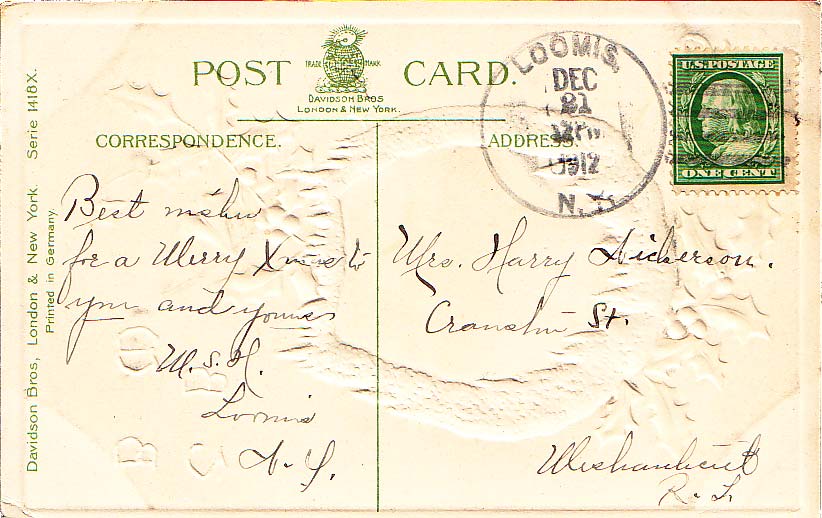 POST CARD.
TRADE MARK
DAVIDSON BROS
LONDON & NEW YORK.
CORRESPONDENCE.
ADDRESS.
Davidson Bros, London & New York. Serie 1418X.
Printed in Germany.
LOOMIS,
DEC
21
1912
N.Y.
U.S. POSTAGE
ONE CENT
Best wishes
for a Merry Xmas to
you and yours
M.S.H.
Loomis
N-Y.
Mrs. Harry Dickerson.
Cranston St.
Meshanticut
R.I.